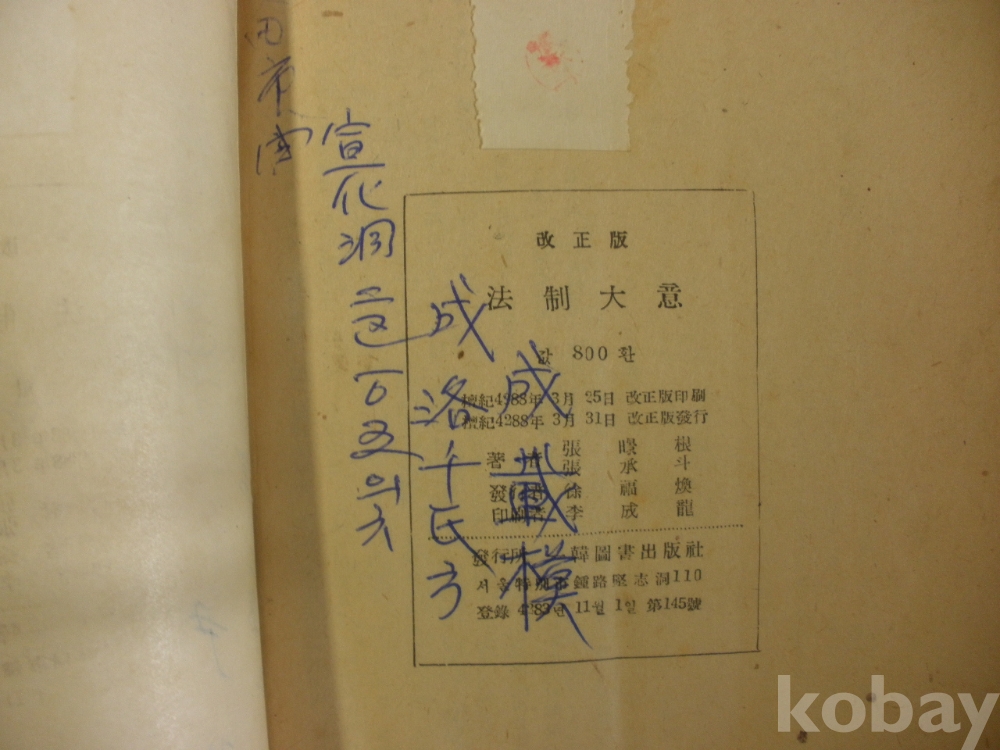 改正版
法制大意
값 800환
檀紀4288年 3月 25日 改正版印刷
檀紀4288年 3月 31日 改正版發行
張暻根
著者 張承斗
發行者 徐福煥
印刷者 李成龍
韓圖書出版社
서울特別市 鍾路區 堅志洞110
登錄 4283년 11월 1일 第145號
宣化洞
成洛千氏方
成載模
kobay